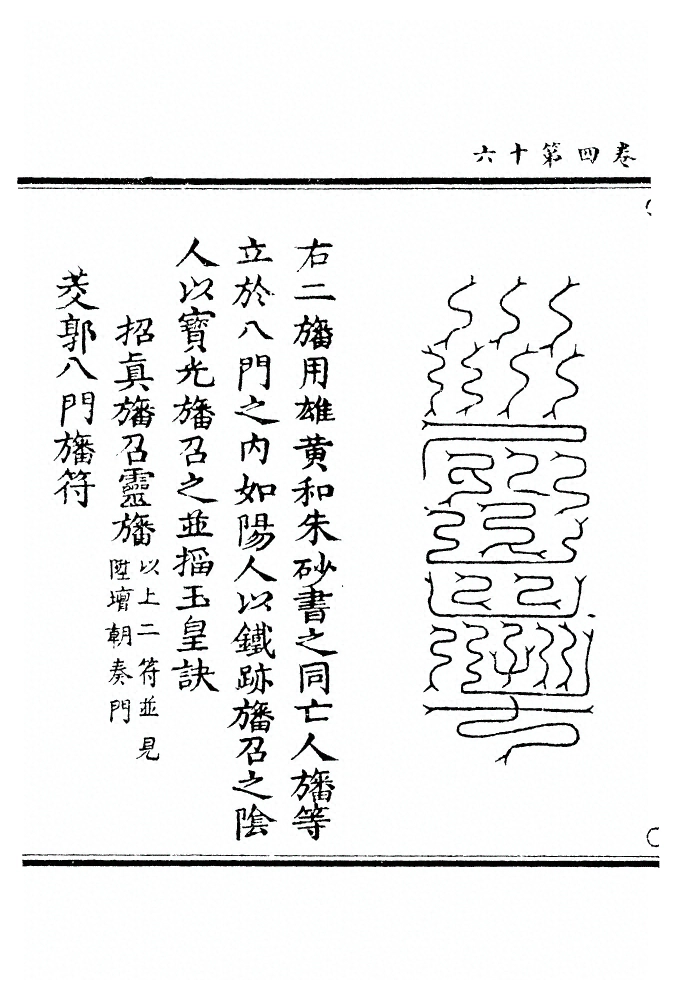 卷四第十六
右二旛用雄黄和朱砂書之同亡人旛等
立於八門之内如陽人以鐵跡旛召之陰
人以寶光旛召之並搯玉皇訣
招眞旛召靈旛
以上二符並見
陞壇朝奏門
茭郭八門旛符